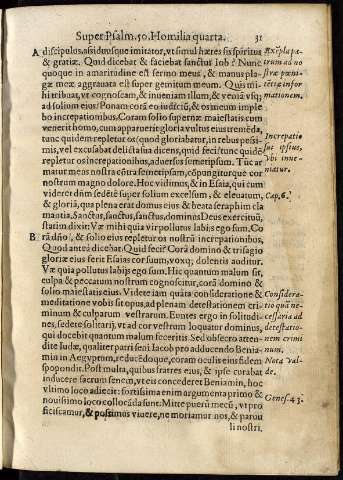 Super Psalm. 50. Homilia quarta. 31
A discipulus, assiduusque imitator, vt simul hæres sis spiritus
& gratiæ. Quid dicebat & faciebat sanctus Iob? Nunc
quoque in amaritudine est sermo meus, & manus pla-
gæ meæ aggrauata est super gemitum meum. Quis mi-
hi tribuat, vt cognoscam, & inueniam illum, & veniā vsq;
ad solium eius? Ponam corā eo iudiciū, & os meum imple
bo increpationibus. Coram solio supernæ maiestatis cum
venerit homo, cum apparuerit gloria vultus eius tremēda,
tunc quidem repletur os (quod gloriabatur, in rebus pessi-
mis, vel excusabat delicta sua dicens, quid feci?) tunc quidē
repletur os increpationibus, aduersos semetipsum. Túc ar
matur mens nostra cōtra semetipsam, cópungiturque cor
nostrum magno dolore. Hoc vidimus, & in Esaia, qui cum
videret dñm sedere super solium excelsum, & eleuatum,
& gloriā, qua plena erat domus eius & beata seraphim cla
mantia. Sanctus, sanctus, sanctus, dominus Deus exercituū,
statim dixit: Væ mihi quia vir pollutus labijs ego sum. Co
B rā dño, & solio eius repletur os nostrū increpationibus,
Quod antea dicebat. Quid feci? Corā domino & trisagio
gloriæ eius ferit Esaias cor suum, voxq; dolentis auditur.
Væ quia pollutus labijs ego sum. Hic quantum malum sit,
culpa & peccatum nostrum cognoscitur, corā domino &
solio maiestatis eius. Videte iam quāta consideratione &
meditatione vobis sit opus, ad plenam detestationem cri
minum & culparum vestrarum. Euntes ergo in solitudi-
nes, sedete solitarij, vt ad cor vestrum loquatur dominus,
qui docebit quantum malum feceritis. Sed obsecro atten-
dite Iudæ, qualiter patri seni Iacob pro adducendo Benia-
min in Aegyptum, reducēdoque, coram oculis eius fidem
spopondit. Post multa, quibus fratres eius, & ipse corabat
inducere sacrum senem, vt eis concederet Beniamin, hoc
vltimo loco adiecit: fortissima enim argumenta primo &
nouissimo loco collocāda sunt. Mitte puerū mecū, vt pro
ficiscamur, & possimus viuere, ne moriamur nos, & paruu
li nostri.
Exēpla pa-
trum ad no-
stræ pœni-
tētiæ infor
mationem.
Increpatio
suæ ipsius,
vbi inue-
niatur.
Cap. 6.
Considera-
tio quā ne-
cessaria ad
detestatio-
nem crimi
num.
Nota val-
de.
Genes. 43.